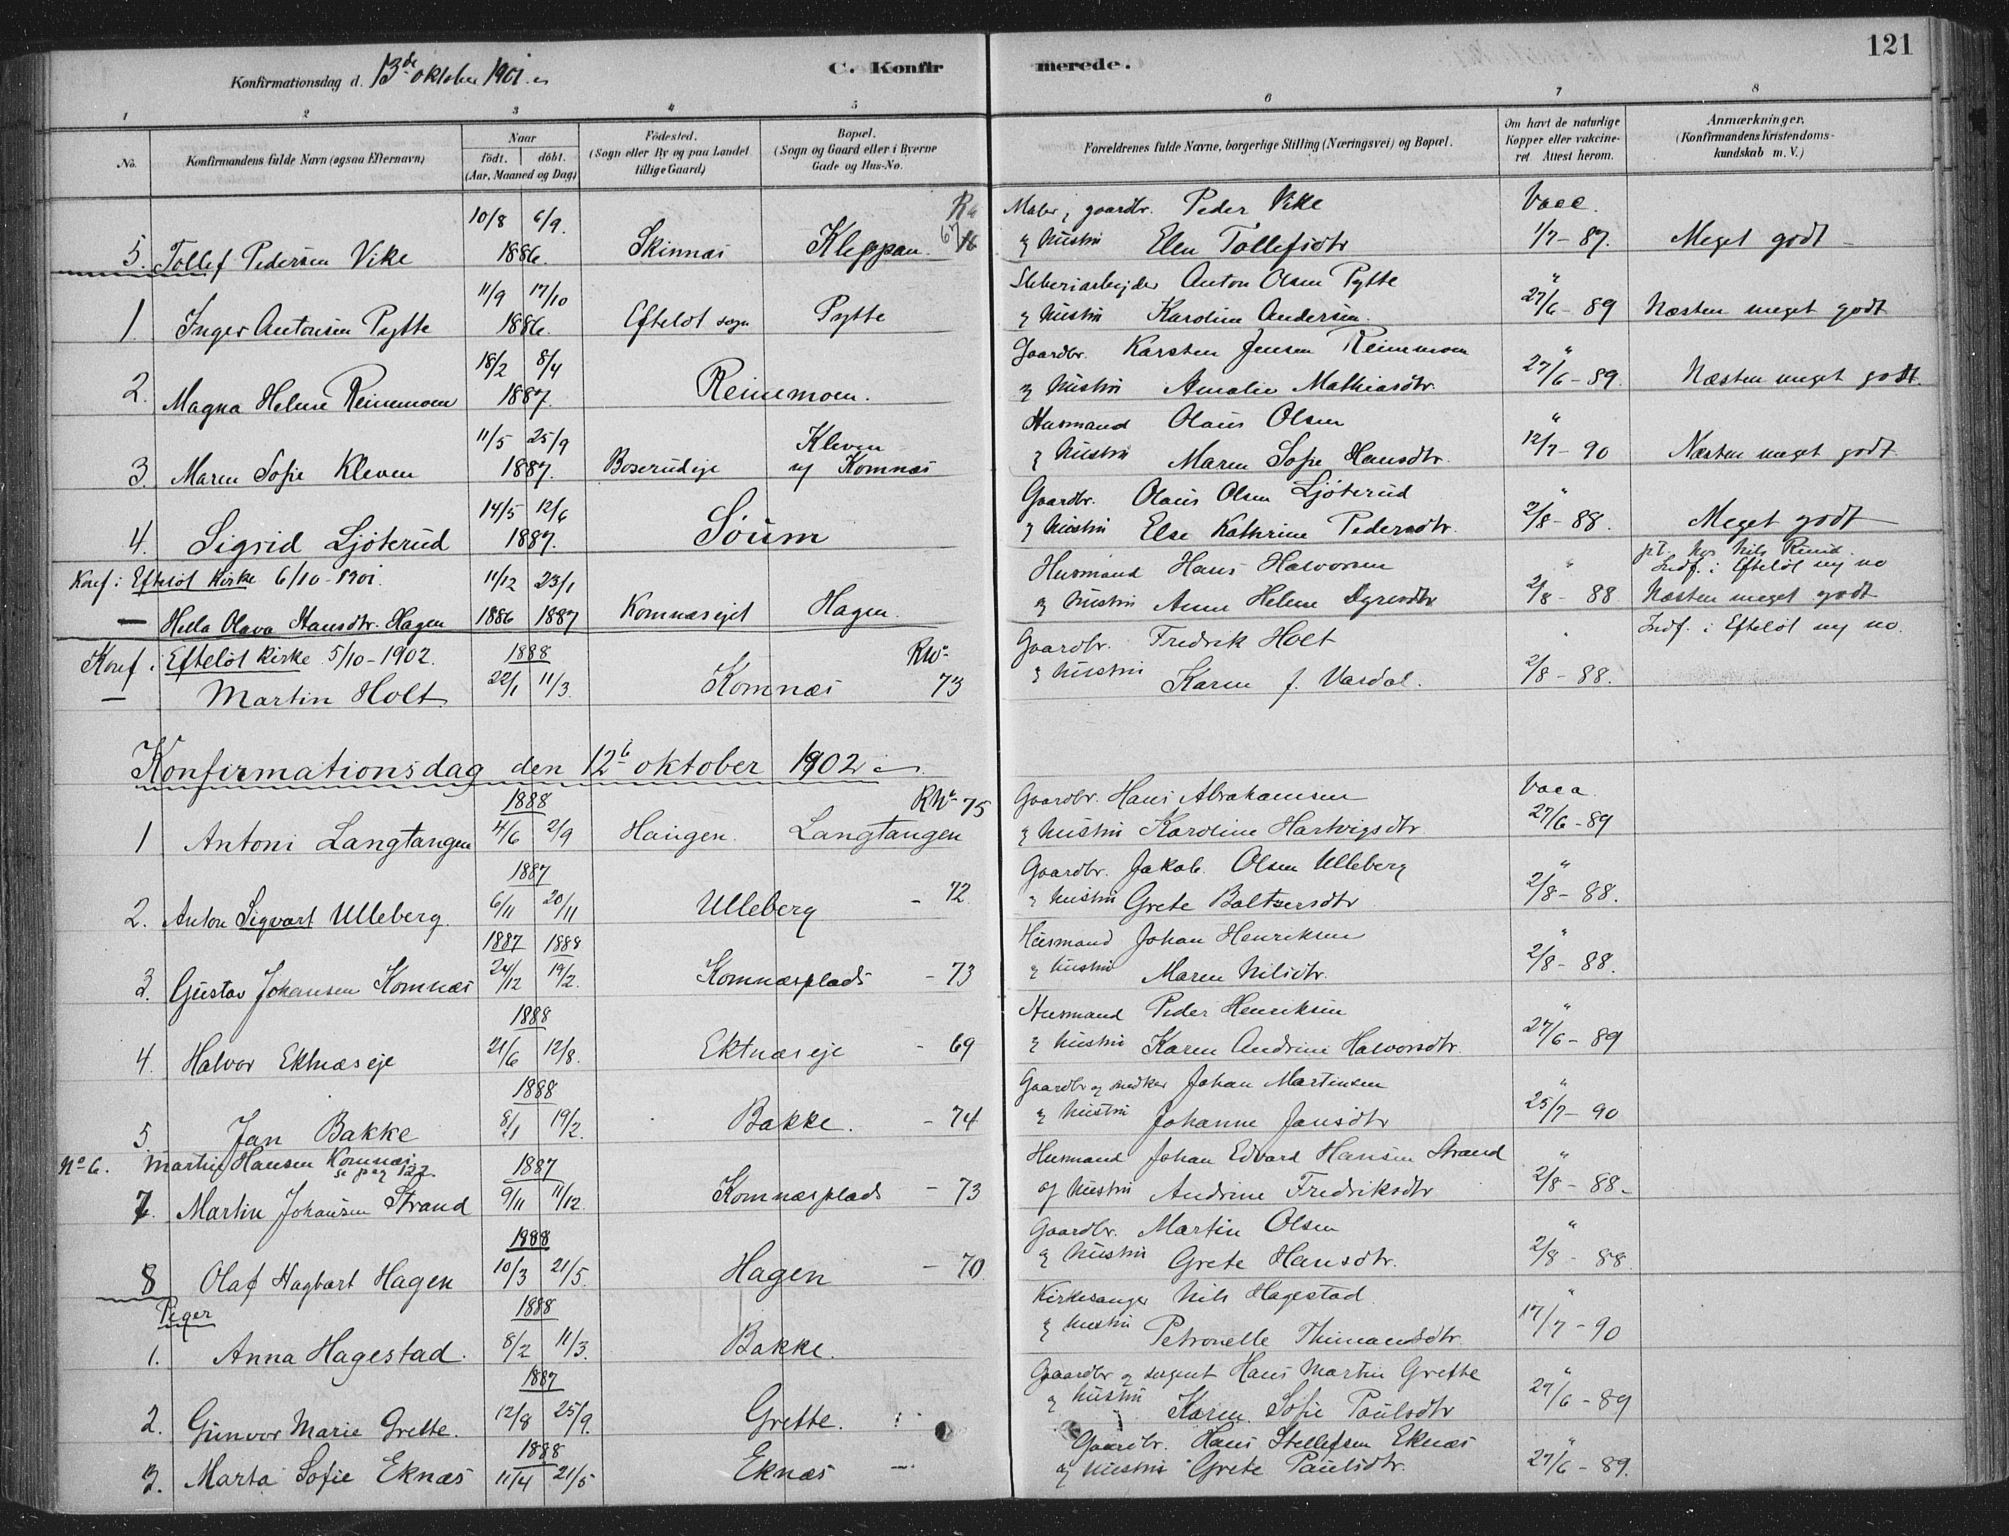 121
Konfirmationsdag d. 13de oktober 1901.
C. Konfirmerede.
1 2 3 4 5 6 7 8
No. Konfirmandens fulde Navn (ogsaa Efternavn) Naar født. døbt. (Aar, Maaned og Dag) Fødested. (Sogn eller By og paa Landet tillige Gaard) Bopæl. (Sogn og Gaard eller i Byerne Gade og Hus-No. Forældrenes fulde Navne, borgerlige Stilling (Næringsvei) og Bopæl. Om havt de naturlige Kopper eller vakcineret. Attest herom. Anmærkninger. (Konfirmandens Kristendomskundskab m. V.)
10/8 6/9. Maler, gaardbr. Peder Vike Vacc.
5. Tollef Pedersen Vike 1886. Skinnæs Kleppan. & hustru Elen Tollefsdtr 1/7-87. Meget godt
11/9 17/10 Sliberiarbejder Anton Olsen Pytte "
1. Inger Antonsen Pytte 1886. Efteløt sogn Pytte & hustru Karoline Andersen. 27/6-89 Næsten meget godt
18/2 8/4 Gaardbr. Karsten Jensen Reinemoen "
2. Magna Helene Reinemoen 1887. Reinemoen. & hustru Amalie Mathiasdtr. 27/6-89. Næsten meget godt.
11/5 25/9 Kleven Husmand Olaus Olsen "
3. Maren Sofie Kleven 1887. Boserudeje af Komnæs & hustru Maren Sofie Hansdtr. 12/7-90 Næsten meget godt
14/5 12/6 Gaardbr. Olaus Olsen Ljøterud "
4. Sigrid Ljøterud 1887. Søum & hustru Else Kathrine Pedersdtr. 2/8-88. Meget godt
Konf: Efteløt kirke 6/10-1901. 11/12 23/1 Husmand Hans Halvorsen " pt. hos Nils Ruud. Indf. i Efteløt ny no
— Hella Olava Hansdtr. Hagen 1886 1887 Komnæsejet Hagen. & hustru Anne Helene Dyresdtr 2/8-88 Næsten meget godt
Indf. i Efteløt ny no.
Konf i Efteløt kirke 5/10-1902. 1888 Gaardbr. Fredrik Holt
— Martin Holt 22/1 11/3. Komnæs 73 & hustru Karen f. Vardal. 2/8-88.
Konfirmationsdag den 12te oktober 1902
1888 75 Gaardbr. Hans Abrahamsen Vacc.
1 Antoni Langtangen 4/6 2/9 Haugen. Langtangen & hustru Karoline Hartvigsdtr 27/6-89
1887 Gaardbr. Jakob Olsen Ulleberg "
2. Anton Sigvart Ulleberg. 6/11 20/11 Ulleberg - 72. & hustru Grete Baltsersdtr 2/8-88.
1887 1888 Husmand Johan Henriksen "
3. Gustav Johansen Komnæs 24/12 19/2. Komnæsplads - 73 & hustru Maren Nilsdtr. 2/8-88.
1888 Husmand Peder Henriksen "
4. Halvor Eknæseje 21/6 12/8. Eknæseje - 69 & hustru Karen Andrine Halvorsdtr. 27/6-89
1888 Gaardbr og snedker Johan Martinsen "
5 Jan Bakke 8/1 19/2. Bakke. - 74 & hustru Johanne Jansdtr 25/7-90
No 6. Martin Hansen Komnæs se pag 122. 1887 Husmand Johan Edvard Hansen Strand "
7. Martin Johansen Strand 9/11 11/12. Komnæsplads - 73 og hustru Andrine Fredriksdtr 2/8-88-
1888 Gaardbr. Martin Olsen "
8 Olaf Hagbart Hagen 10/3 21/5. Hagen - 70. & hustru Grete Hansdtr. 2/8-88
Piger 1888 Kirkesanger Nils Hagestad "
1. Anna Hagestad. 8/2 11/3. Bakke. & hustru Petronelle Thimansdtr 17/7-90
1887 Gaardbr og sergent Hans Martin Grette "
2. Gunvor Marie Grette. 12/8 25/9. Grette. & hustru Karen Sofie Paulsdtr 27/6-89
1888 Gaardbr. Hans Stellefsen Eknæs "
3. Marta Sofie Eknæs 11/4 21/5 Eknæs og hustru Grete Paulsdtr. 27/6-89.